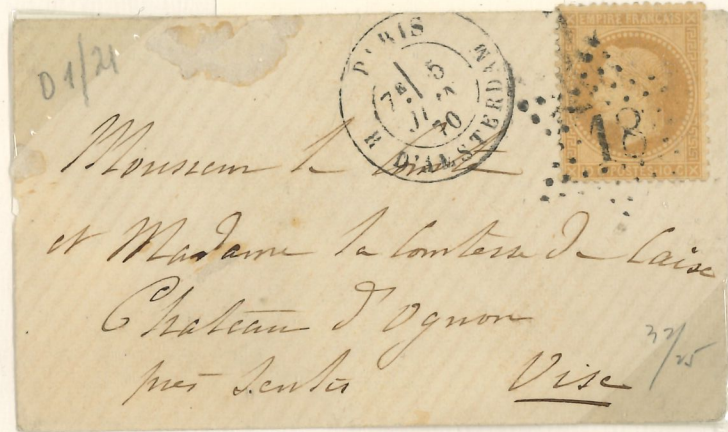 D 1/21
PARIS
R. D'AMSTERDAM
7E 5
70
EMPIRE FRANÇAIS
18
POSTES
Monsieur le Comte
et Madame la Comtesse de Caise
Chateau d'Ognon
près Senlis Oise
32/25